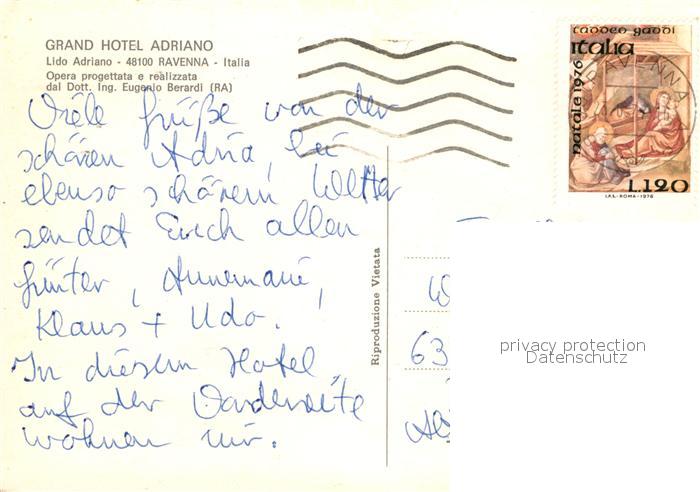 GRAND HOTEL ADRIANO
Lido Adriano - 48100 RAVENNA - Italia
Opera progettata e realizzata
dal Dott. Ing. Eugenio Berardi (RA)
Viele Grüße von der
schönen Adria, bei
ebenso schönem Wetter
sendet Euch allen
Günter, Annemarie,
Klaus + Udo.
In diesem Hotel
auf der Vorderseite
wohnen wir.
Riproduzione Vietata
taddeo gaddi
italia
natale 1976
L.120
I.P.S.-ROMA-1976
RAVENNA
63
privacy protection
Datenschutz